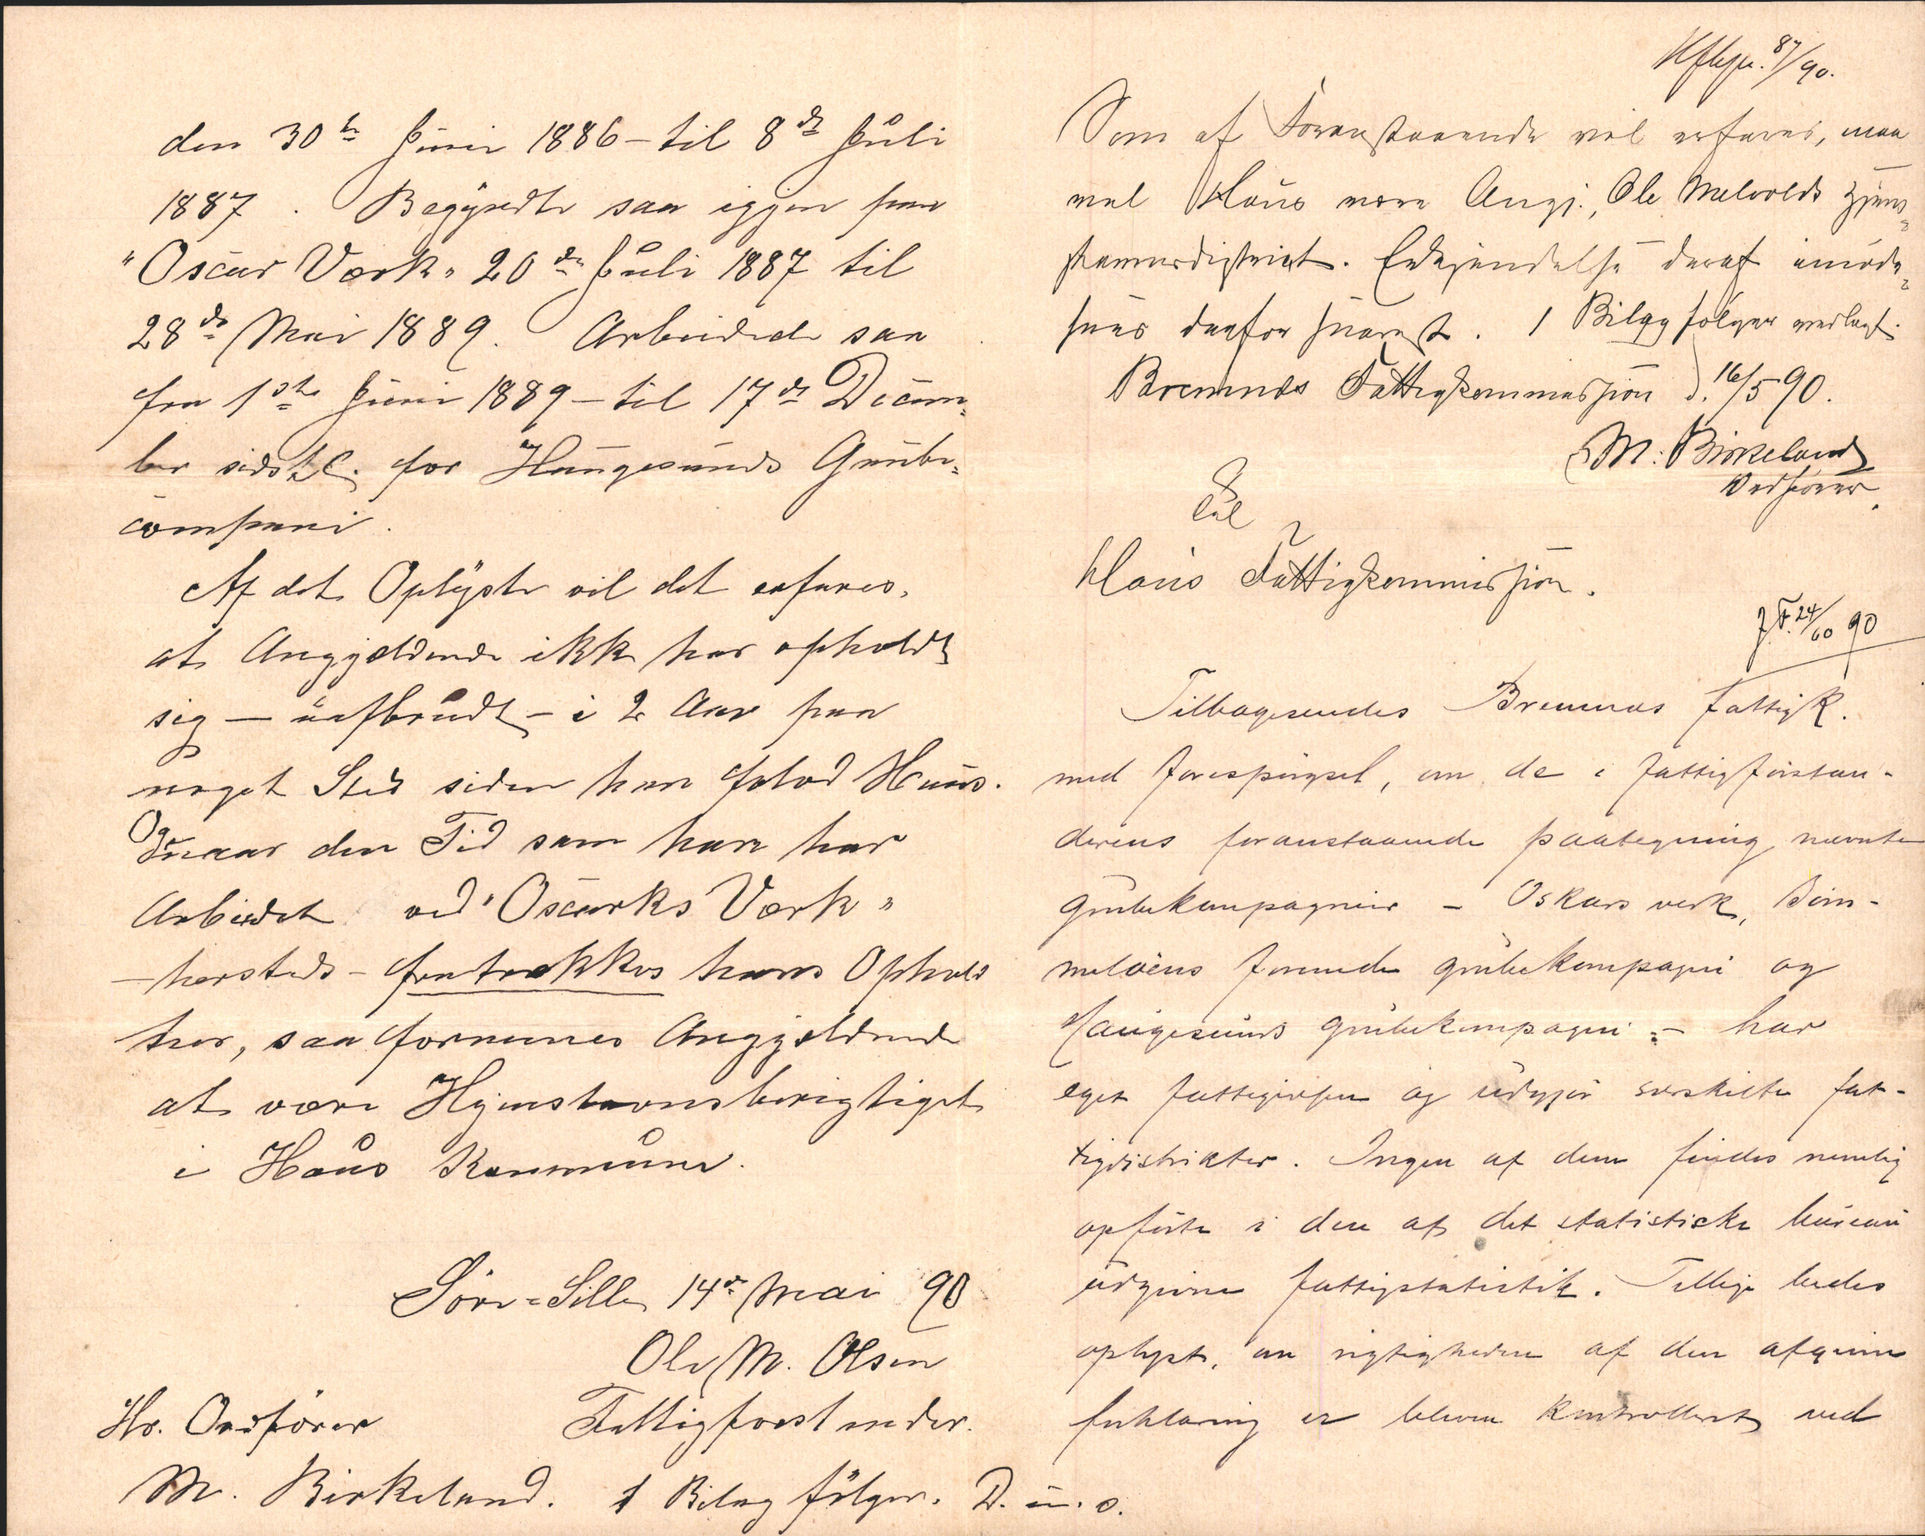 den 30te Juni 1886 - til 8de Juli
1887. Begyndte saa igjen paa
"Oscar Værk" 20de Juli 1887 til
28de Mai 1889. Arbeidede saa
fra 1ste Juni 1889 - til 17de Decem-
ber sidstl. for Haugesunds Grube-
compani.
Af det Oplyste vil det erfares,
at Angjældende ikke har opholdt
sig - uafbrudt - i 2 Aar paa
noget Sted siden han forlod Haus.
Og naar den Tid som han har
Arbeidet ved "Oscarks Værk"
- hersteds - fratrækkes hans Ophold
her, saa formenes Angjældende
at være Hjemstavnsberigtiget
i Haus Kommune.
Søre-Lille 14de Mai 90
Ole M. Olsen
Fattigforstander.
Hr. Ordfører
M. Birkeland. 1 Bilag følger. D. u. s.
87/90.
Som af Foranstaaende vil erfares, maa
vel Haus være Angj. Ole Melvolds Hjem-
stavnsdistrict. Erkjendelse deraf imøde-
sees derfor snarest. 1 Bilag følger vedlagt.
Bremnes Fattigkommission d. 16/5 90.
M. Birkeland
Ordfører.
Til
Haus Fattigkommission.
J.F. 24/60 90
Tilbagesendes Bremnes fattigk.
med forespørgsel, om de i fattigforstan-
derens foranstaaende paategning nævnte
grubekompagnier - Oskars verk, Bøm-
meløens forenede grubekompagni og
Haugesunds grubekompagni - har
eget fattigvæsen og udgjør særskilte fat-
tigdistrikter. Ingen af dem findes nemlig
opførte i den af det statistiske bureau
udgivne fattigstatistik. Tillige bedes
oplyst, om rigtigheden af den afgivne
forklaring er bleven kontrolleret ved